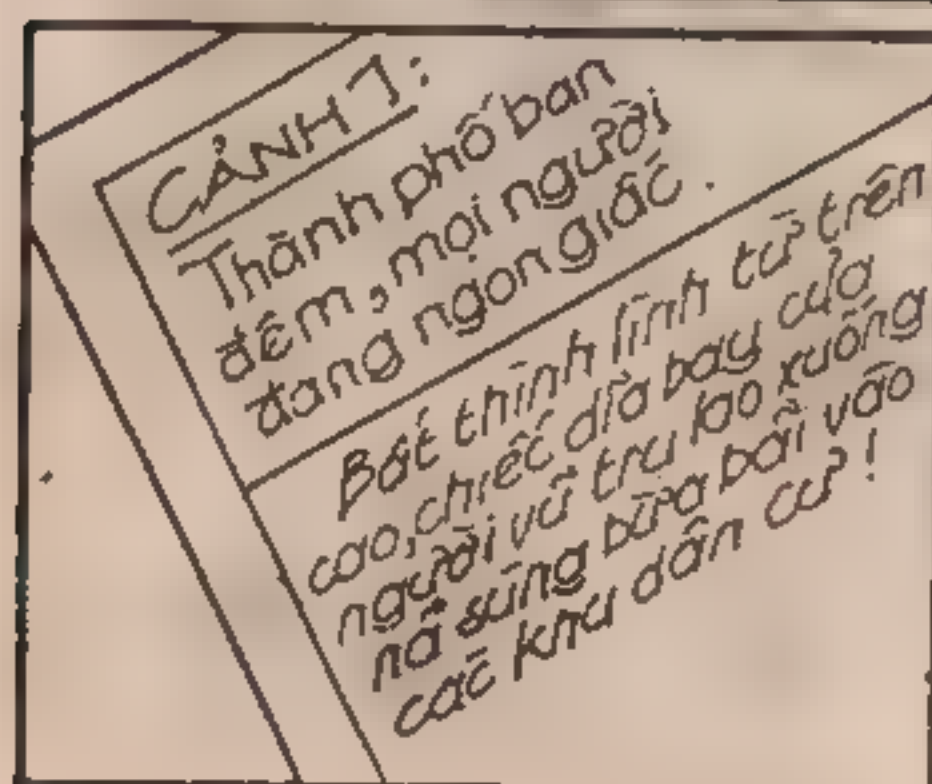 CẢNH 1:
Thành phố ban
đêm, mọi người
đang ngon giấc.
Bất thình lình từ trên
cao, chiếc dĩa bay của
người vũ trụ lao xuống
nã súng bừa bãi vào
các khu dân cư!